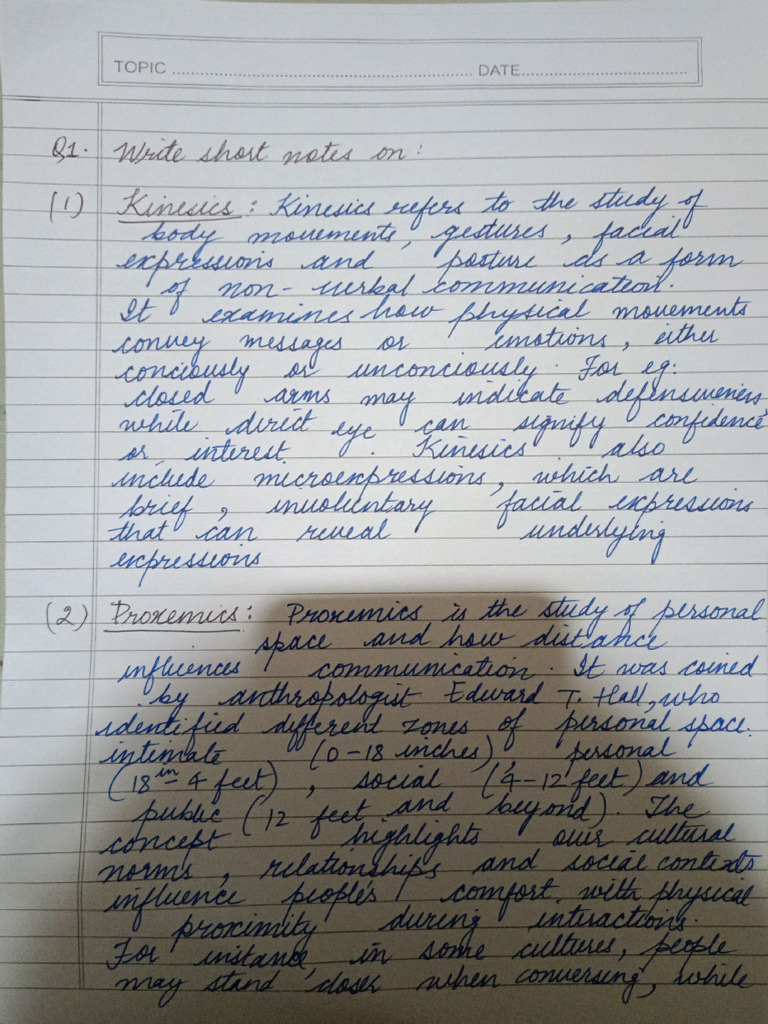 TOPIC ............ DATE............
Q1. Write short notes on :
(1) Kinesics : Kinesics refers to the study of
body movements, gestures, facial
expressions and posture as a form
of non-verbal communication.
It examines how physical movements
convey messages or emotions, either
conciously or unconciously. For eg:
closed arms may indicate defensiveness
while direct eye can signify confidence
or interest. Kinesics also
include microexpressions, which are
brief, involuntary facial expressions
that can reveal underlying
expressions
(2) Proxemics : Proxemics is the study of personal
space and how distance
influences communication. It was coined
by anthropologist Edward T. Hall, who
identified different zones of personal space.
intimate (0-18 inches), personal
(18 in - 4 feet), social (4-12 feet) and
public (12 feet and beyond). The
concept highlights our cultural
norms, relationships and social contexts
influence people's comfort with physical
proximity during interactions.
For instance, in some cultures, people
may stand closer when conversing, while